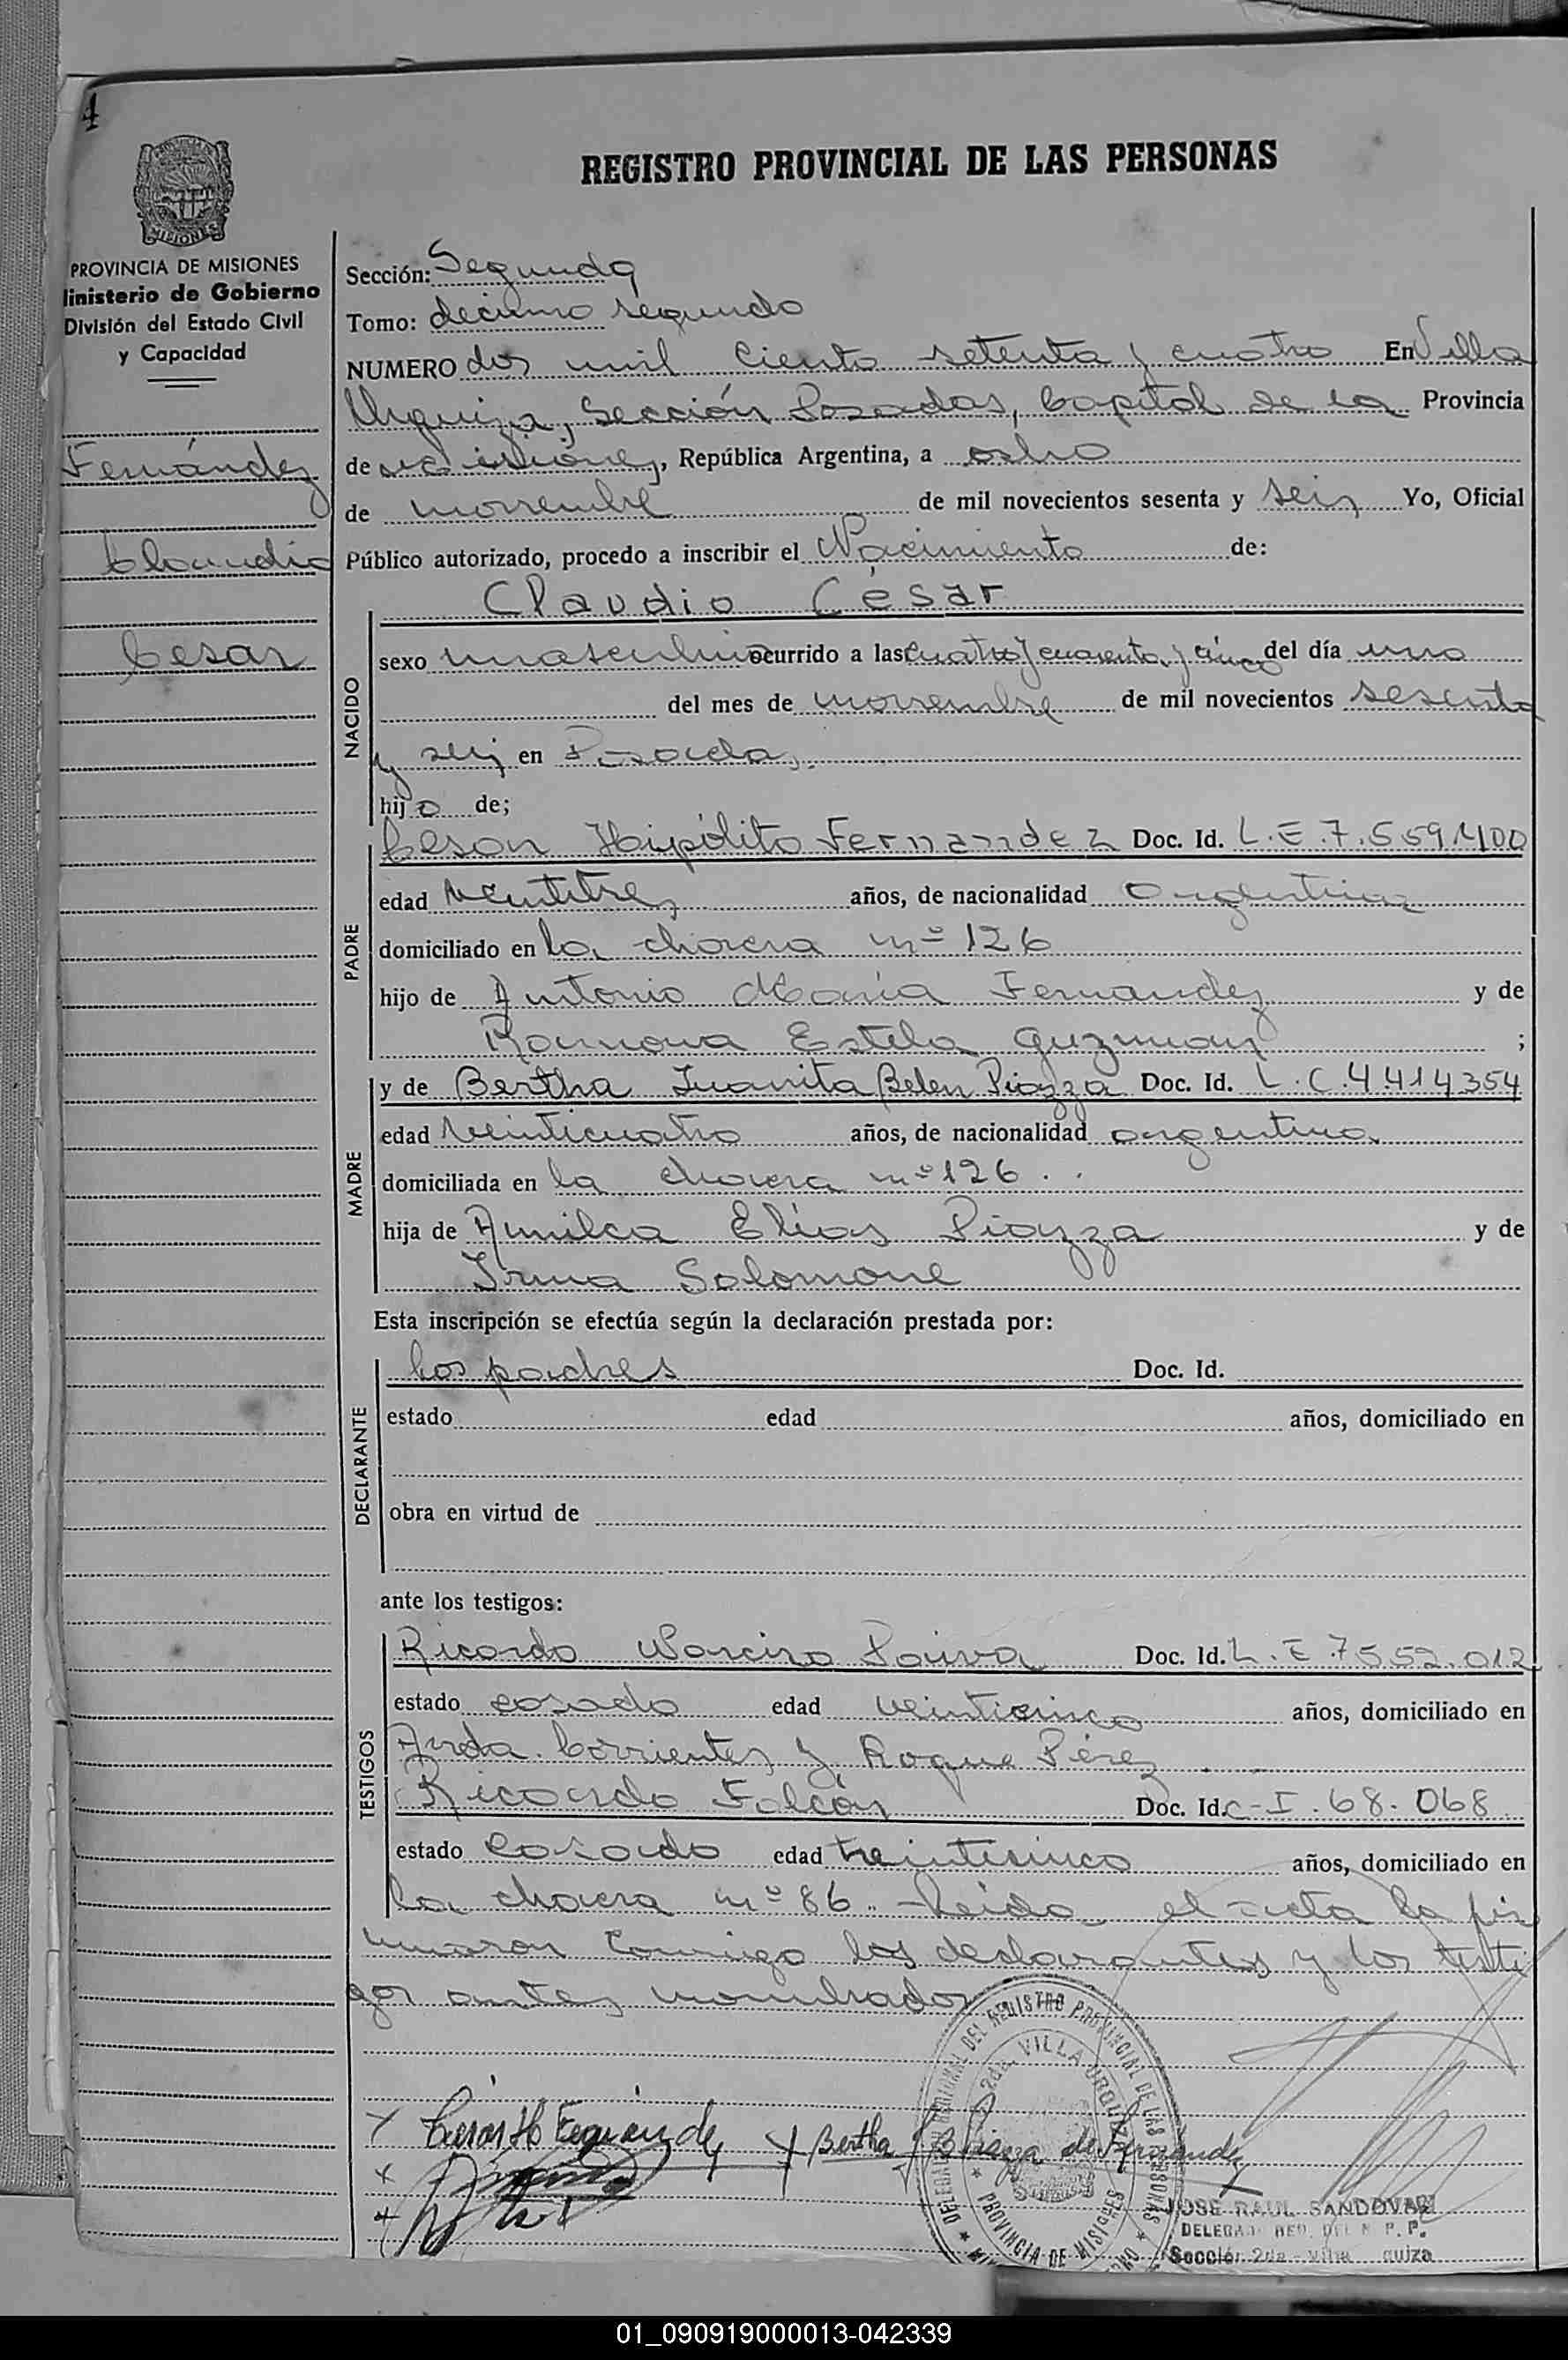 4
REGISTRO PROVINCIAL DE LAS PERSONAS
MISIONES
PROVINCIA DE MISIONES
inisterio de Gobierno
División del Estado Civil
y Capacidad
Fernández
Claudio
Cesar
Sección: Segunda
Tomo: décimo segundo
NUMERO dos mil ciento setenta y cuatro En Villa
Urquiza, Sección Posadas, Capital de la Provincia
de Misiones, República Argentina, a ocho
de noviembre de mil novecientos sesenta y seis Yo, Oficial
Público autorizado, procedo a inscribir el Nacimiento de:
Claudio César
NACIDO
sexo masculino ocurrido a las cuatro y cuarenta y cinco del día uno
del mes de noviembre de mil novecientos sesenta
y seis en Posadas.
hijo de;
PADRE
Cesar Hipólito Fernandez Doc. Id. L.E.7.559.400
edad veintitres años, de nacionalidad argentina
domiciliado en la chacra nº 126
hijo de Antonio María Fernandez y de
Ramona Estela Guzman ;
MADRE
y de Bertha Juanita Belen Piazza Doc. Id. L.C.4.414354
edad veinticuatro años, de nacionalidad argentina
domiciliada en la chacra nº 126.
hija de Amilca Elías Piazza y de
Irma Solomone
Esta inscripción se efectúa según la declaración prestada por:
DECLARANTE
los padres Doc. Id.
estado edad años, domiciliado en
obra en virtud de
ante los testigos:
TESTIGOS
Ricardo Narciso Paiva Doc. Id. L.E.7552.012
estado casado edad veinticinco años, domiciliado en
Avda. Corrientes y Roque Pérez
Ricardo Falcón Doc. Id. C-I.68.068
estado casado edad treinticinco años, domiciliado en
la chacra nº 86. Leída el acta la fir
maron conmigo los declarantes y los testi
gos antes nombrados
DELEGACION REGIONAL DEL REGISTRO PROVINCIAL DE LAS PERSONAS
2da. VILLA URQUIZA
PROVINCIA DE MISIONES
Cesar H Fernández Bertha J B Piazza de Fernandez
JOSE RAUL SANDOVAL
DELEGADO REG. DEL R. P. P.
Sección 2da - Villa quiza
01_090919000013-042339